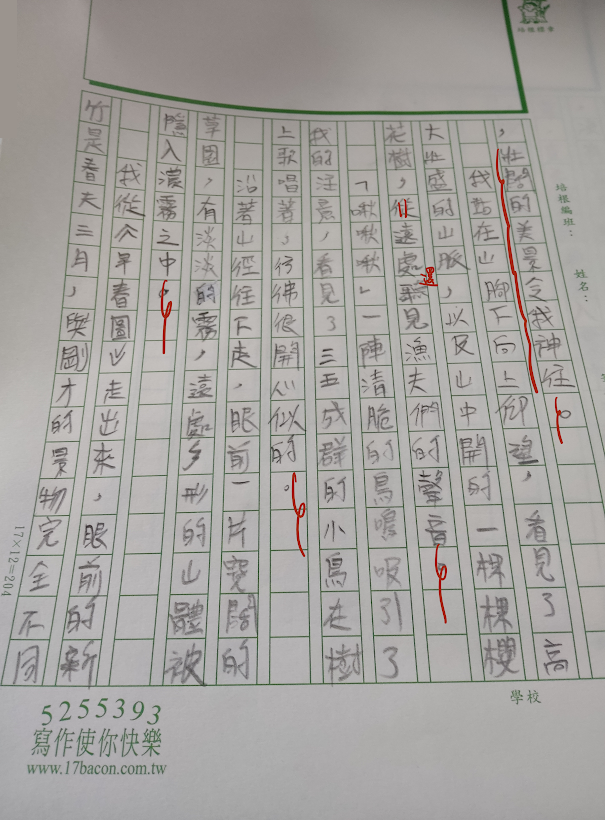 培根標準
培根編班：
姓名：
學校
，壯闊的美景令我神往。
我站在山腳下向上仰望，看見了高
大壯盛的山脈，以及山中開的一棵棵櫻
花樹，從遠處還聽見漁夫們的聲音。
「啾啾啾」一陣清脆的鳥鳴吸引了
我的注意，看見了三五成群的小鳥在樹
上歌唱著，彷彿很開心似的。
沿著山徑往下走，眼前一片寬闊的
草園，有淡淡的霧，遠處形的山體被
隱入濃霧之中。
我從《早春圖》走出來，眼前的新
竹是春天三月，與剛才的景物完全不同
17×12=204
5255393
寫作使你快樂
www.17bacon.com.tw